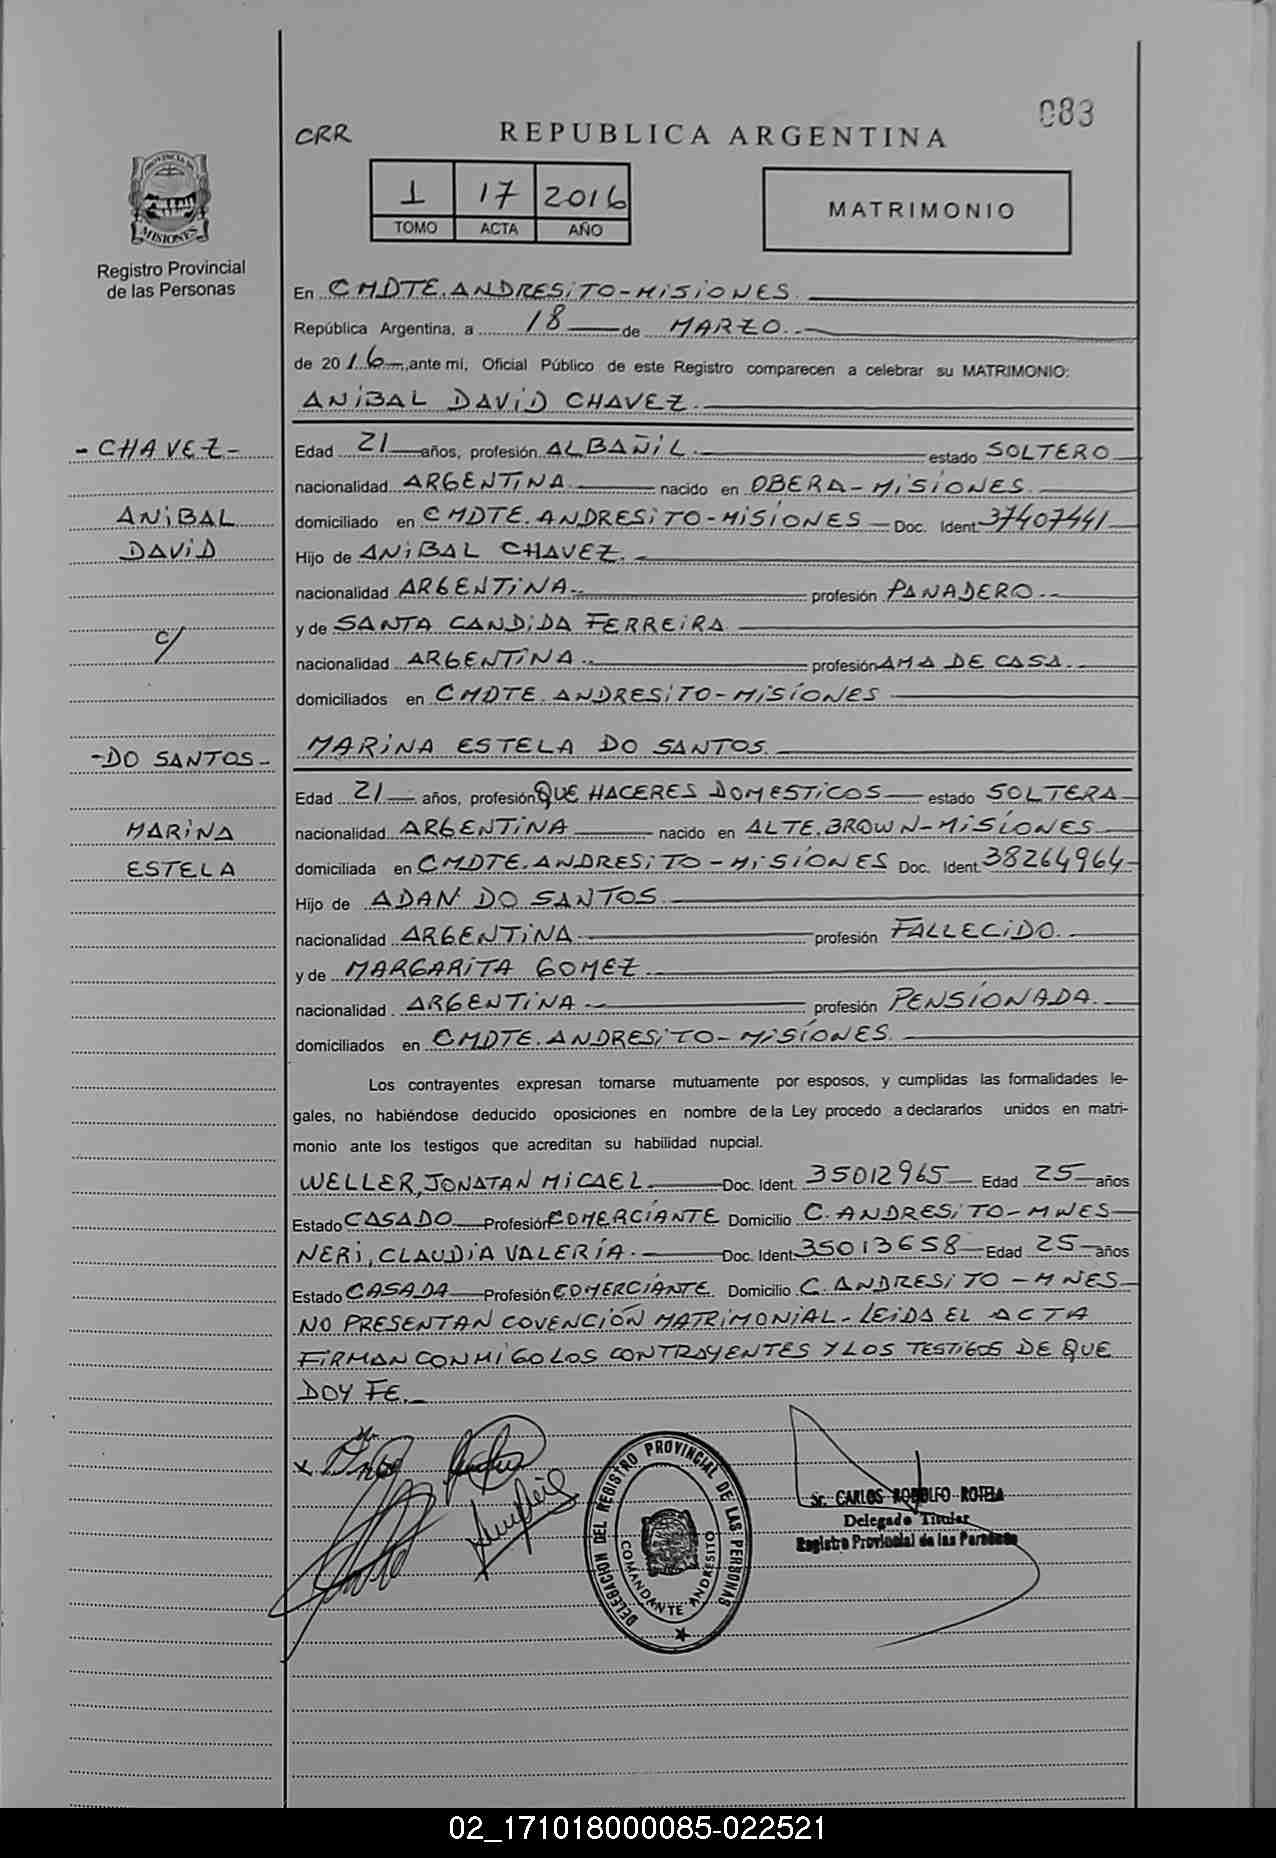 083
CRR
REPUBLICA ARGENTINA
PROVINCIA DE
MISIONES
Registro Provincial
de las Personas
1 17 2016
TOMO ACTA AÑO
MATRIMONIO
En CMDTE. ANDRESITO-MISIONES.
República Argentina, a 18 de MARZO.
de 2016, ante mí, Oficial Público de este Registro comparecen a celebrar su MATRIMONIO:
ANIBAL DAVID CHAVEZ.
- CHAVEZ -
ANIBAL
DAVID
c/
-DO SANTOS-
MARINA
ESTELA
Edad 21 años, profesión ALBAÑIL. estado SOLTERO
nacionalidad ARGENTINA. nacido en OBERA-MISIONES.
domiciliado en CMDTE. ANDRESITO-MISIONES Doc. Ident. 37407441
Hijo de ANIBAL CHAVEZ.
nacionalidad ARGENTINA.- profesión PANADERO.-
y de SANTA CANDIDA FERREIRA
nacionalidad ARGENTINA.- profesión AMA DE CASA.
domiciliados en CMDTE. ANDRESITO-MISIONES
MARINA ESTELA DO SANTOS.
Edad 21 años, profesión QUE HACERES DOMESTICOS estado SOLTERA
nacionalidad ARGENTINA nacido en ALTE. BROWN-MISIONES
domiciliada en CMDTE. ANDRESITO-MISIONES Doc. Ident. 38264964
Hijo de ADAN DO SANTOS.
nacionalidad ARGENTINA. profesión FALLECIDO.
y de MARGARITA GOMEZ.
nacionalidad ARGENTINA.- profesión PENSIONADA.
domiciliados en CMDTE. ANDRESITO-MISIONES.
Los contrayentes expresan tomarse mutuamente por esposos, y cumplidas las formalidades le-
gales, no habiéndose deducido oposiciones en nombre de la Ley procedo a declararlos unidos en matri-
monio ante los testigos que acreditan su habilidad nupcial.
WELLER, JONATAN MICAEL. Doc. Ident. 35012965 Edad 25 años
Estado CASADO Profesión COMERCIANTE Domicilio C. ANDRESITO-MNES
NERI, CLAUDIA VALERIA. Doc. Ident. 35013658 Edad 25 años
Estado CASADA Profesión COMERCIANTE. Domicilio C. ANDRESITO-MNES
NO PRESENTAN COVENCIÓN MATRIMONIAL-LEIDA EL ACTA
FIRMAN CONMIGO LOS CONTRAYENTES Y LOS TESTIGOS DE QUE
DOY FE.
DELEGACION DEL REGISTRO PROVINCIAL DE LAS PERSONAS
COMANDANTE ANDRESITO
Sr. CARLOS RODOLFO ROTELA
Delegado Titular
Registro Provincial de las Personas
02_171018000085-022521